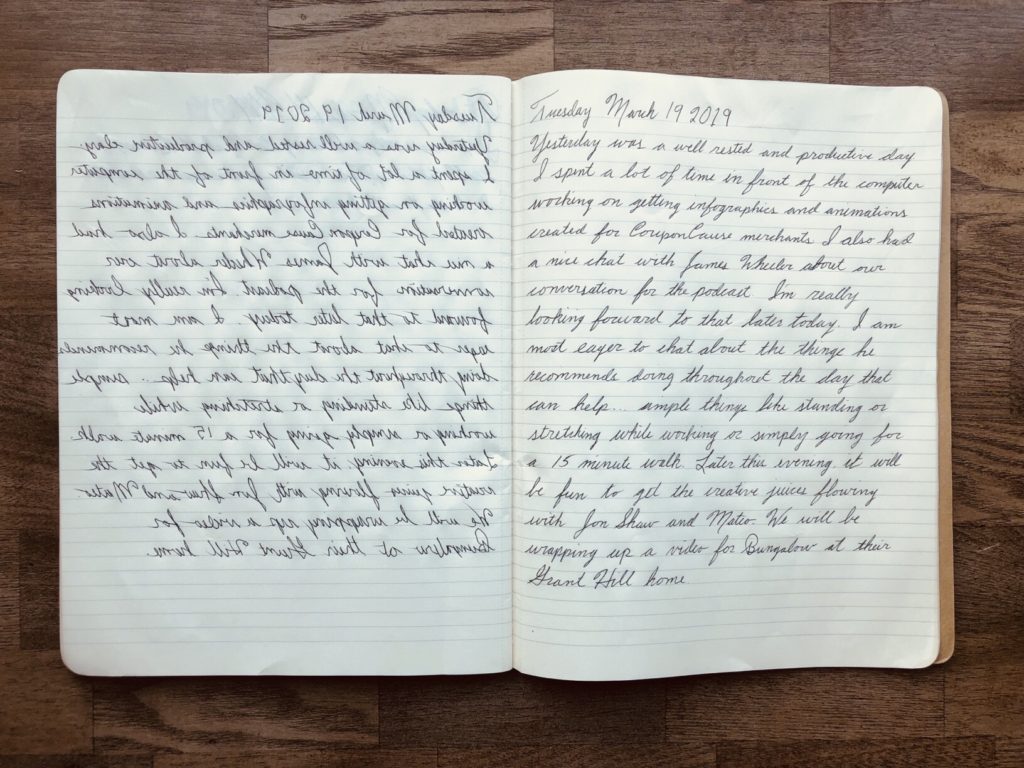 Tuesday March 19 2019
Yesterday was a well rested and productive day
I spent a lot of time in front of the computer
working on getting infographics and animations
created for CouponCause merchants. I also had
a nice chat with James Wheeler about our
conversation for the podcast. I'm really looking
forward to that later today. I am most
eager to chat about the things he recommends
doing throughout the day that can help... simple
things like standing or stretching while
working or simply going for a 15 minute walk.
Later this evening, it will be fun to get the
creative juices flowing with Jon Shaw and Mateo
We will be wrapping up a video for
Bungalow at their Grant Hill home.
Tuesday March 19 2019
Yesterday was a well rested and productive day
I spent a lot of time in front of the computer
working on getting infographics and animations
created for CouponCause merchants. I also had
a nice chat with James Wheeler about our
conversation for the podcast. I'm really
looking forward to that later today. I am
most eager to chat about the things he
recommends doing throughout the day that
can help... simple things like standing or
stretching while working or simply going for
a 15 minute walk. Later this evening, it will
be fun to get the creative juices flowing
with Jon Shaw and Mateo. We will be
wrapping up a video for Bungalow at their
Grant Hill home